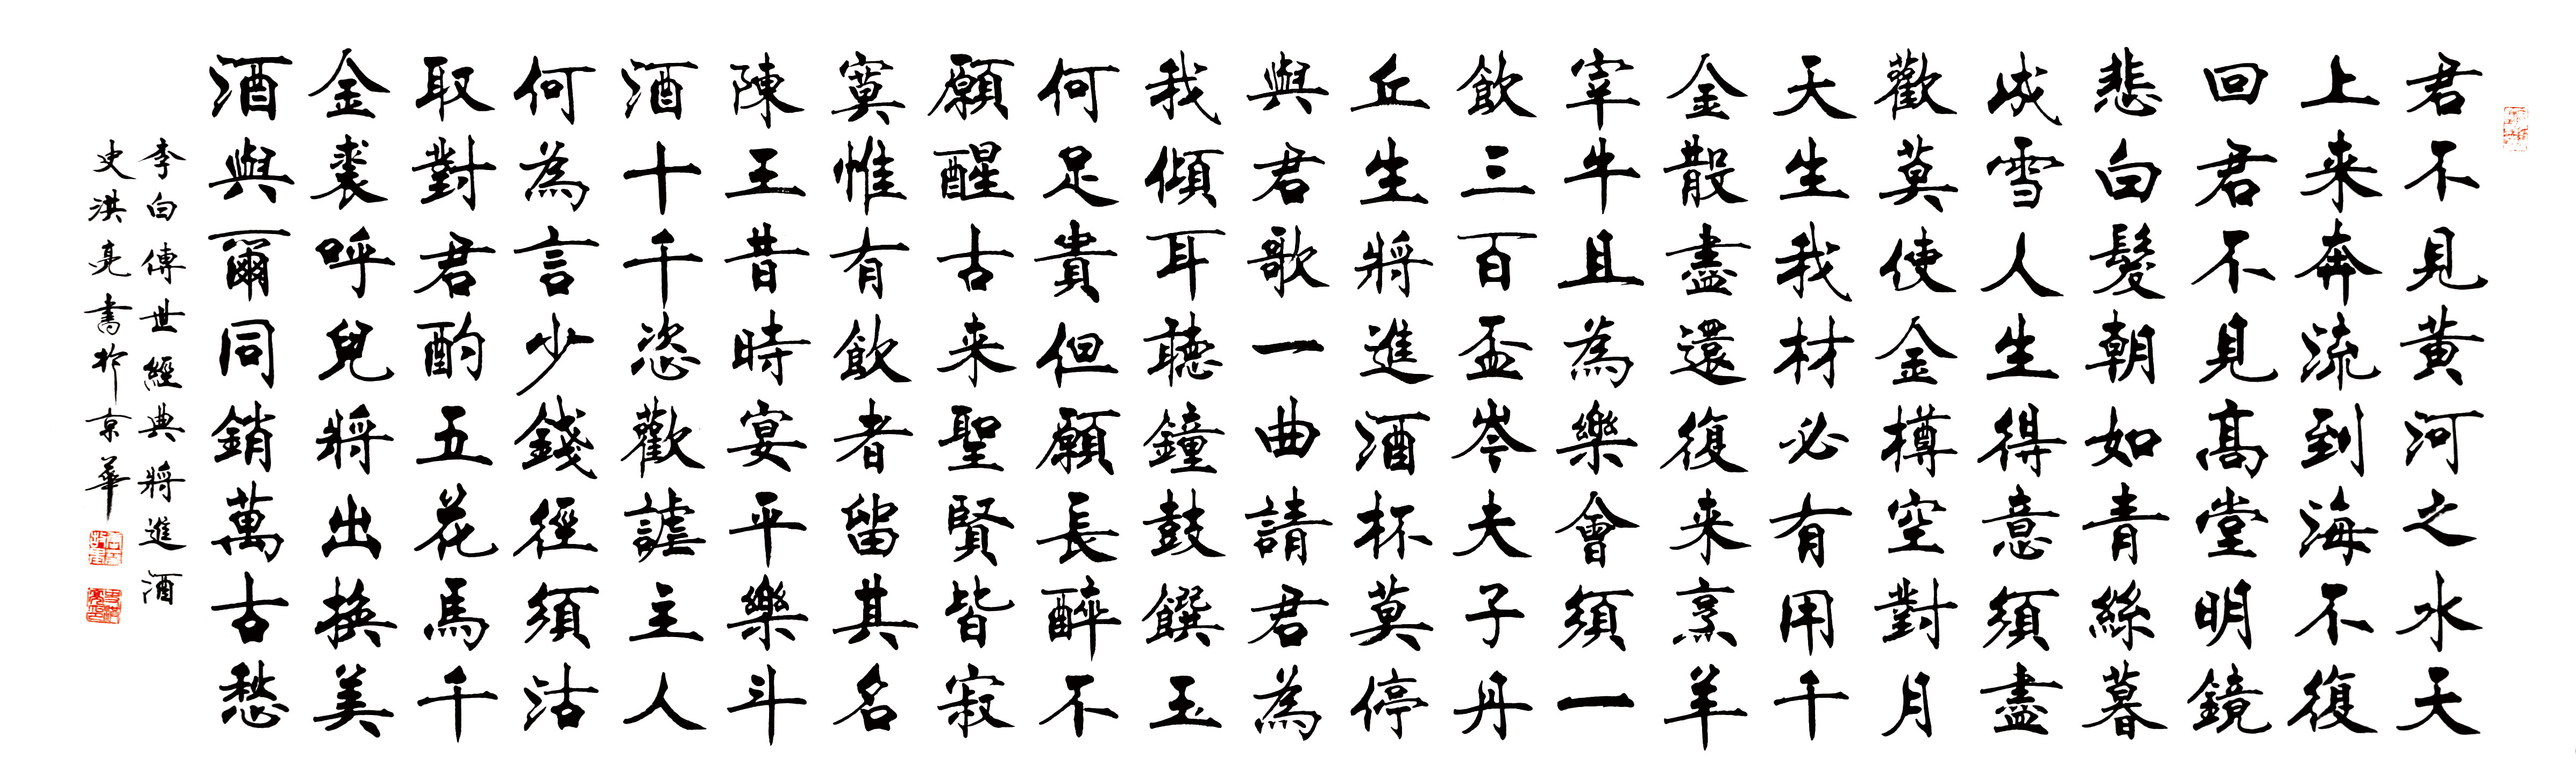 君不見黄河之水天
上来奔流到海不復
回君不見髙堂明鏡
悲白髮朝如青絲暮
成雪人生得意須盡
歡莫使金樽空對月
天生我材必有用千
金散盡還復来烹羊
宰牛且為樂會須一
飲三百盃岑夫子丹
丘生將進酒杯莫停
與君歌一曲請君為
我傾耳聽鐘鼓饌玉
何足貴但願長醉不
願醒古来聖賢皆寂
寞惟有飲者留其名
陳王昔時宴平樂斗
酒十千恣歡謔主人
何為言少錢徑須沽
取對君酌五花馬千
金裘呼兒將出換美
酒與爾同銷萬古愁
李白傳世經典將進酒
史淇亮書於京華